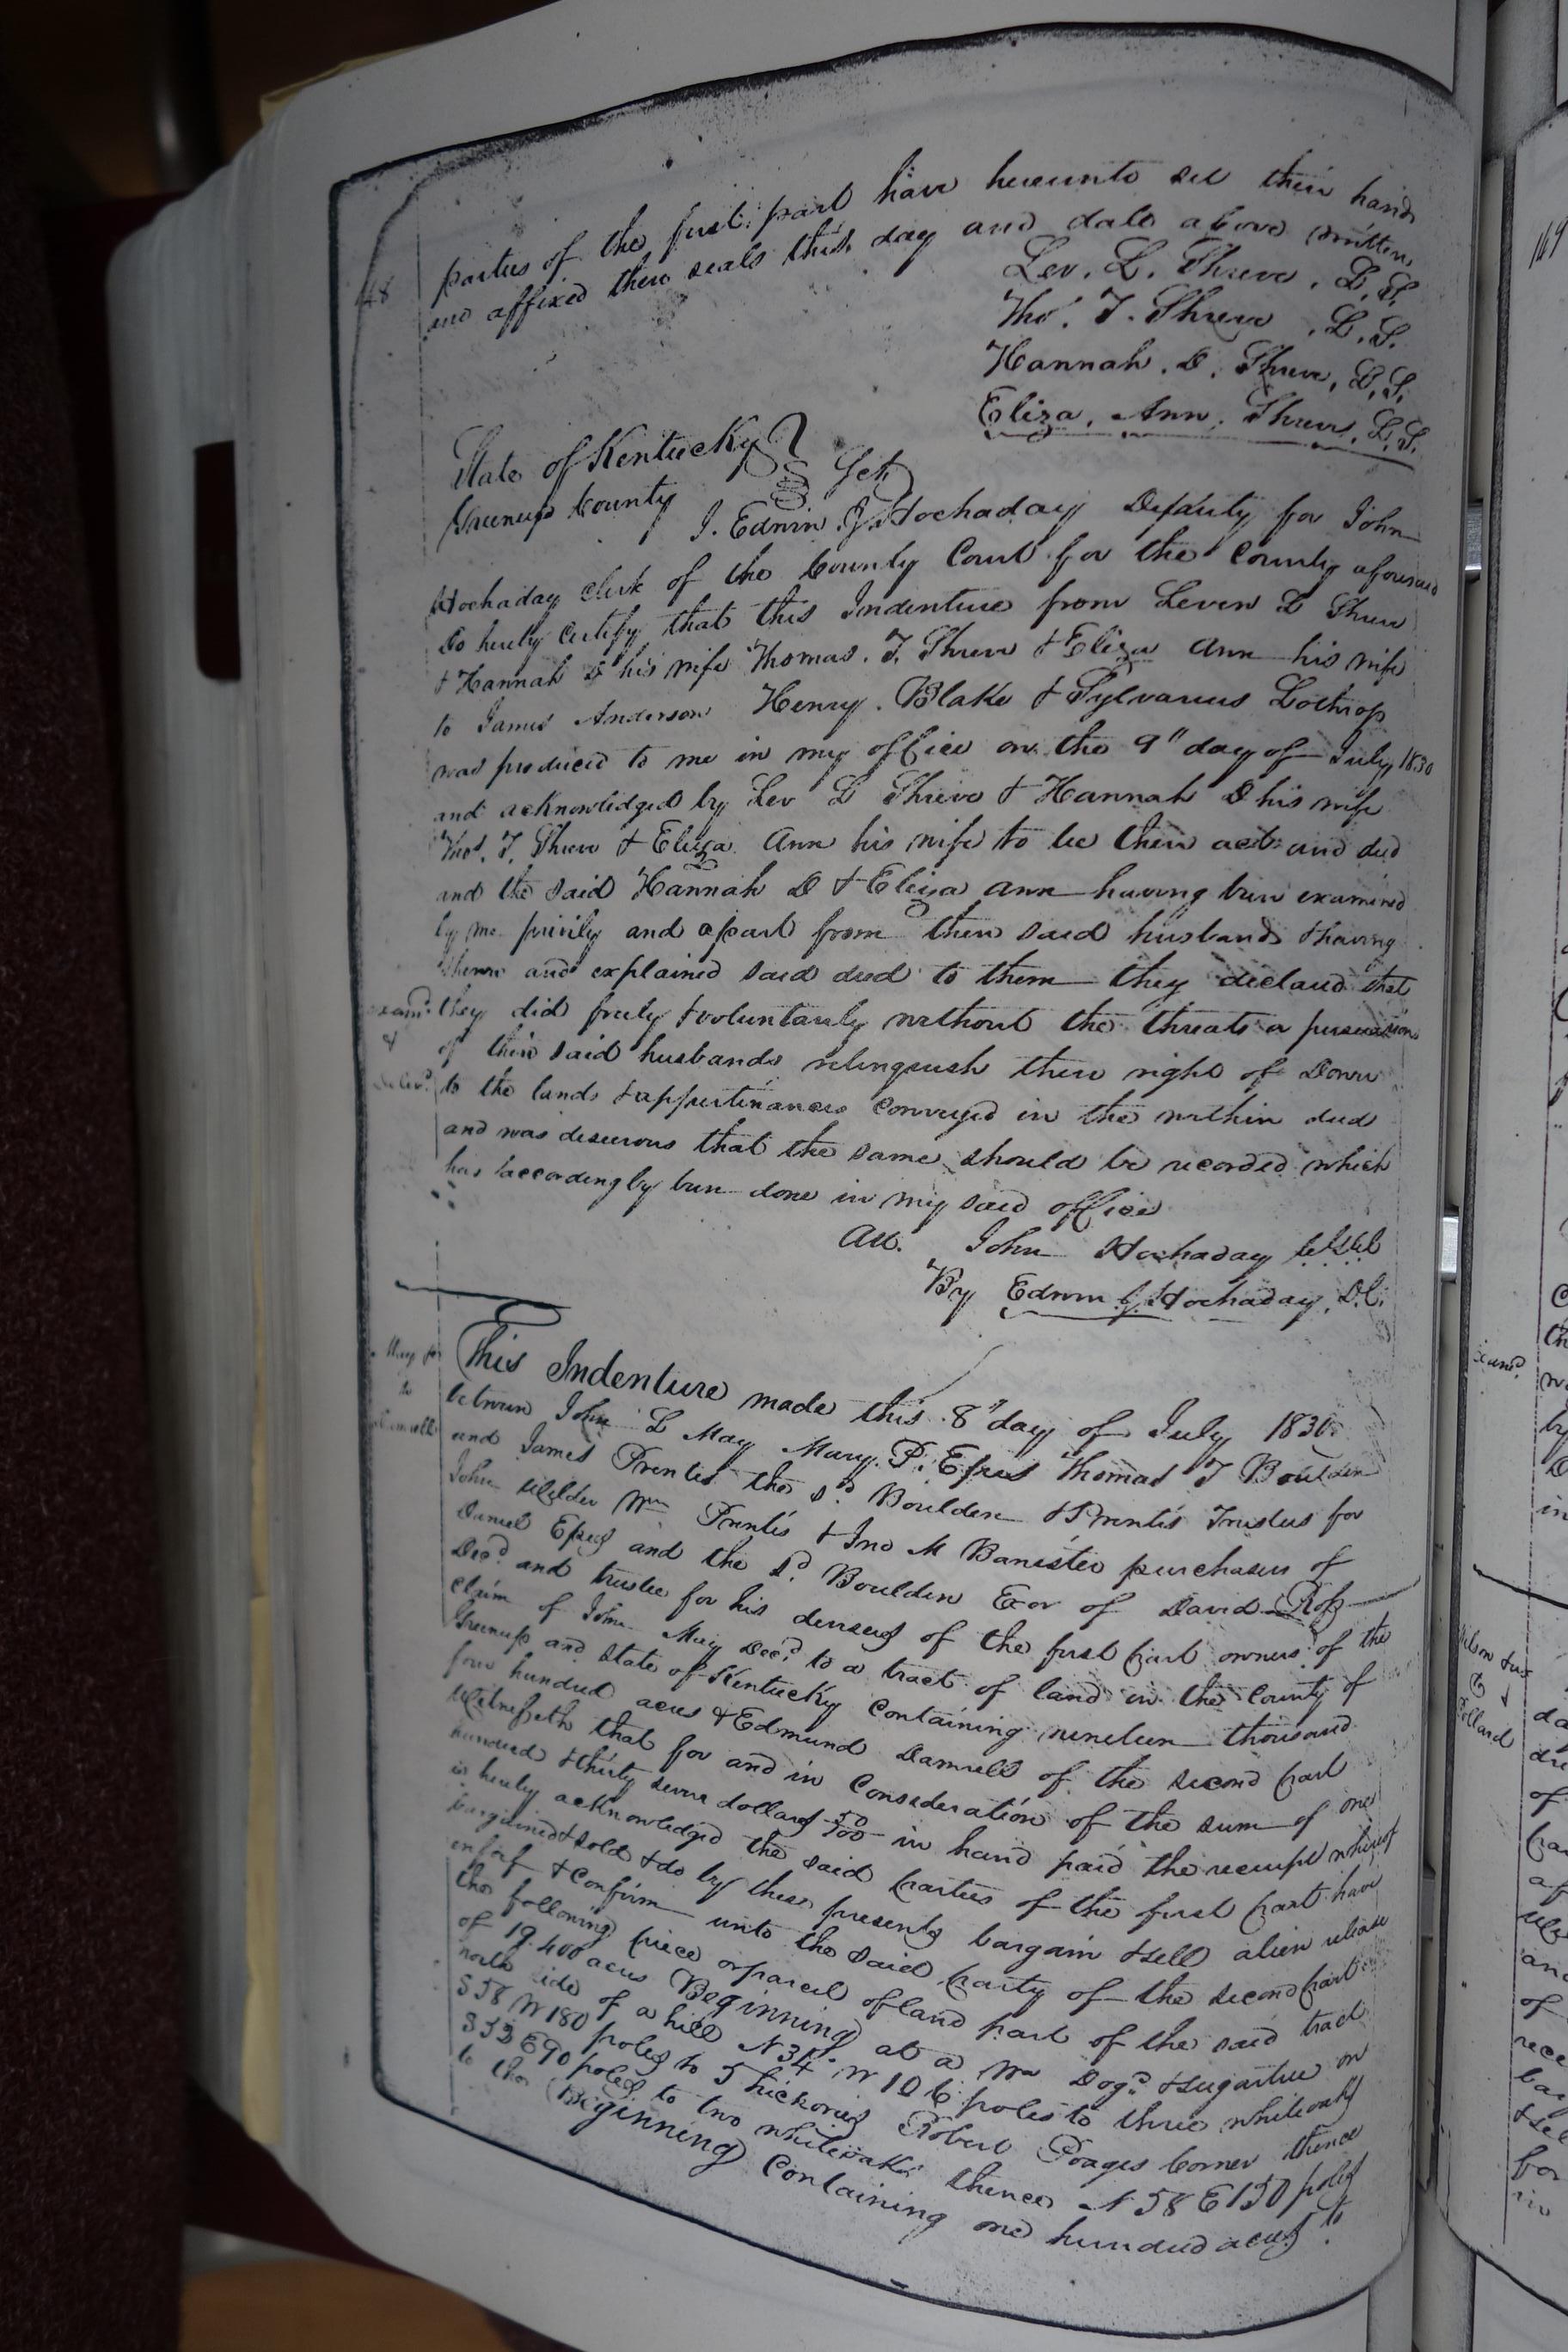 48
parties of the first part have hereunto set their hands
and affixed their seals this day and date above written
Lev. L. Shreve, L.S.
Tho. T. Shreve, L.S.
Hannah. D. Shreve, L.S.
Eliza. Ann. Shreve, L.S.
State of Kentucky
Greenup County Sct
I. Edwin J. Hockaday Deputy for John
Hockaday clerk of the County Court for the County aforesaid
do hereby certify that this Indenture from Leven L Shreve
& Hannah D his wife Thomas. T. Shreve & Eliza Ann his wife
to James Anderson Henry. Blake & Sylvanus Lothrop
was produced to me in my office on the 9" day of July 1830
and acknowledged by Lev L Shreve & Hannah D his wife
Thos. T. Shreve & Eliza Ann his wife to be their act and deed
and the said Hannah D & Eliza Ann having been examined
by me privily and apart from their said husbands & having
shewn and explained said deed to them they declared that
they did freely & voluntarily without the threats or persuasion
of their said husbands relinquish their right of Dower
to the lands & appurtinances conveyed in the within deed
and was desirous that the same should be recorded which
has accordingly been done in my said office
Exam.d
&
Deliv.d
Att. John Hockaday
By Edwin J. Hockaday, D.C.
May &c
to
Damrell
This Indenture made this 8" day of July 1830
between John L May Mary. P. Epes Thomas T Bouldin
and James Prentis the sd. Bouldin & Prentis Trustees for
John Wilder Wm Prentis & Jno M Banister purchasers of
Daniel Epes and the sd. Bouldin Exor of David Ross
Decd. and trustee for his devisees of the first part owners of the
claim of John May Decd. to a tract of land in the County of
Greenup and State of Kentucky Containing nineteen thousand
four hundred acres & Edmund Damrell of the second part
Witnesseth that for and in Consideration of the sum of one
hundred & thirty seven dollars 50/100 in hand paid the receipt whereof
is hereby acknowledged the said parties of the first part have
bargained & sold & do by these presents bargain & sell alien release
enfeof & Confirm unto the said party of the second part
the following piece or parcel of land part of the said tract
of 19.400 acres Beginning at a Dogd. & sugartree on
north side of a hill N 34° W 106 poles to three whiteoaks
S 58 W 180 poles to 5 hickories Robert Poages Corner thence
S 33 E 90 poles to two whiteoaks thence N 58 E 150 poles
to the Beginning Containing one hundred acres